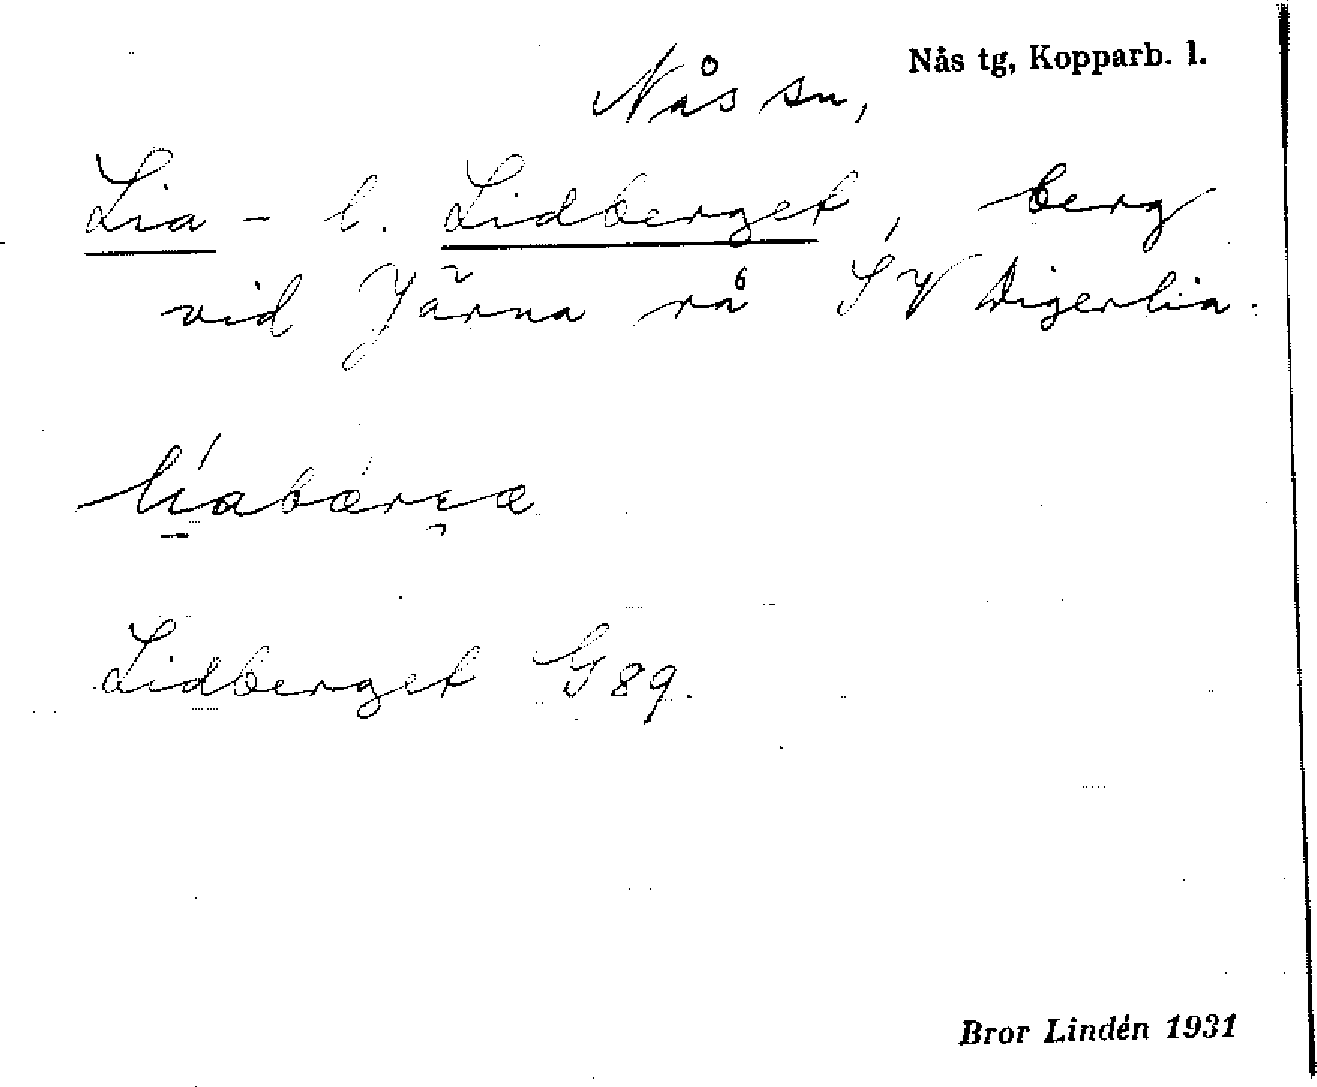 Nås tg, Kopparb. l.
Nås sn,
Lia - l. Lidberget, berg
vid Järna rå SV Digerlia.
Lidberget G 89.
Bror Lindén 1931